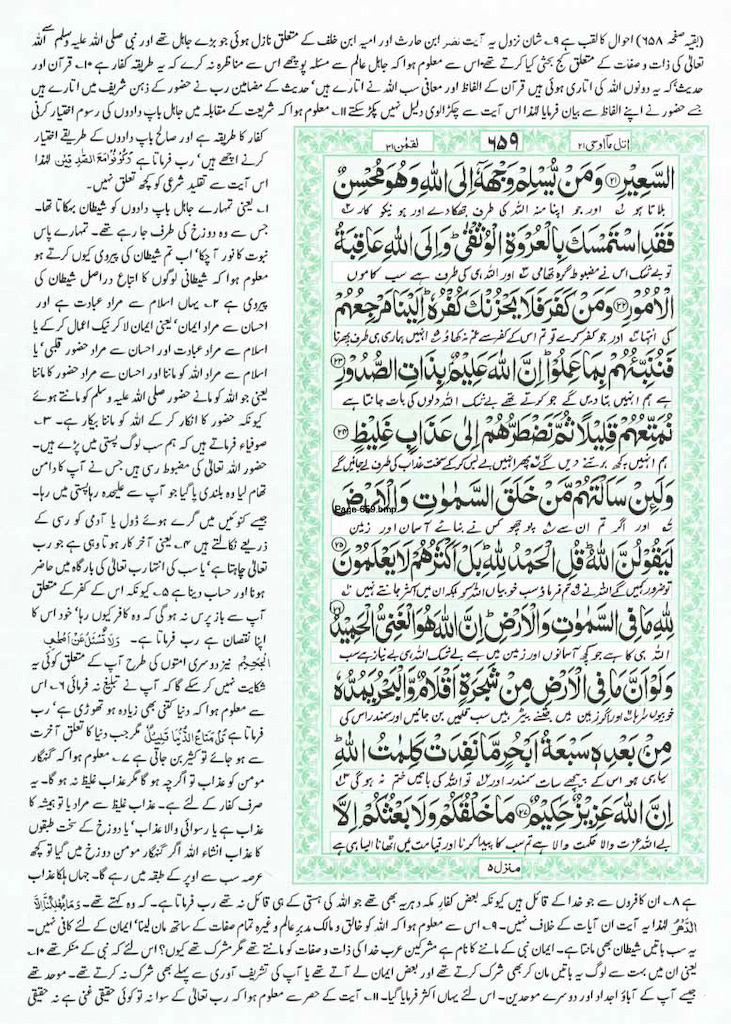 (بقیہ صفحہ ۶۵۸) احوال کا لقب ہے ۹۔ شان نزول یہ آیت نضر ابن حارث اور امیہ ابن خلف کے متعلق نازل ہوئی جو بڑے جاہل تھے اور نبی صلی اللہ علیہ وسلم سے اللہ
تعالیٰ کی ذات و صفات کے متعلق کج بحثی کیا کرتے تھے۔ اس سے معلوم ہوا کہ جاہل عالم سے مسئلہ پوچھے اس سے مناظرہ نہ کرے کہ یہ طریقہ کفار ہے ۱۰۔ قرآن اور
حدیث' کہ یہ دونوں اللہ کی اتاری ہوئی ہیں قرآن کے الفاظ اور معانی سب اللہ نے اتارے ہیں' حدیث کے مضامین رب نے حضور کے ذہن شریف میں اتارے ہیں
جسے حضور نے اپنے الفاظ سے بیان فرمایا لہٰذا اس آیت سے چکڑالوی دلیل نہیں پکڑ سکتے ۱۱۔ معلوم ہوا کہ شریعت کے مقابلہ میں جاہل باپ دادوں کی رسوم اختیار کرنی
کفار کا طریقہ ہے اور صالح باپ دادوں کے طریقے اختیار
کرنے اچھے ہیں' رب فرماتا ہے وَکُوْنُوْا مَعَ الصّٰدِقِیْنَ لہٰذا
اس آیت سے تقلید شرعی کو کچھ تعلق نہیں۔
۱۔ یعنی تمہارے جاہل باپ دادوں کو شیطان بہکاتا تھا۔
جس سے وہ دوزخ کی طرف جا رہے تھے۔ تمہارے پاس
نبوت کا نور آ چکا' اب تم شیطان کی پیروی کیوں کرتے ہو
معلوم ہوا کہ شیطانی لوگوں کا اتباع دراصل شیطان کی
پیروی ہے ۲۔ یہاں اسلام سے مراد عبادت ہے اور
احسان سے مراد ایمان' یعنی ایمان لا کر نیک اعمال کرے یا
اسلام سے مراد عبادت اور احسان سے مراد حضور قلبی' یا
اسلام سے مراد اللہ کو ماننا اور احسان سے مراد حضور کا ماننا
یعنی جو اللہ کو مانے حضور صلی اللہ علیہ وسلم کو مانتے ہوئے
کیونکہ حضور کا انکار کر کے اللہ کو ماننا بیکار ہے۔ ۳۔
صوفیاء فرماتے ہیں کہ ہم سب لوگ پستی میں پڑے ہیں۔
حضور اللہ تعالیٰ کی مضبوط رسی ہیں جس نے آپ کا دامن
تھام لیا وہ بلندی پا گیا جو آپ سے علیحدہ رہا پستی میں رہا۔
جیسے کنوئیں میں گرے ہوئے ڈول یا آدمی کو رسی کے
ذریعے نکالتے ہیں ۴۔ یعنی آخر کار ہوتا وہی ہے جو رب
تعالیٰ چاہتا ہے' یا سب کی انتہا رب تعالیٰ کی بارگاہ میں حاضر
ہونا اور حساب دینا ہے ۵۔ کیونکہ اس کے کفر کے متعلق
آپ سے باز پرس نہ ہو گی کہ وہ کافر کیوں رہا' خود اس کا
اپنا نقصان ہے رب فرماتا ہے۔ وَلَا تُسْئَلُ عَنْ اَصْحٰبِ
الْجَحِیْمِ نیز دوسری امتوں کی طرح آپ کے متعلق کوئی یہ
شکایت نہیں کر سکے گا کہ آپ نے تبلیغ نہ فرمائی ۶۔ اس
سے معلوم ہوا کہ دنیا کتنی بھی زیادہ ہو تھوڑی ہے' رب
فرماتا ہے قُلْ مَتَاعُ الدُّنْیَا قَلِیْلٌ مگر جب دنیا کا تعلق آخرت
سے ہو جائے تو کثیر بن جاتی ہے ۷۔ معلوم ہوا کہ گنہگار
مومن کو عذاب تو اگرچہ ہو گا مگر عذاب غلیظ نہ ہو گا۔ یہ
صرف کفار کے لئے ہے۔ عذاب غلیظ سے مراد یا تو ہمیشہ کا
عذاب ہے یا رسوائی والا عذاب' یا دوزخ کے سخت طبقوں
کا عذاب انشاء اللہ اگر گنہگار مومن دوزخ میں گیا تو کچھ
عرصہ سب سے اوپر کے طبقہ میں رہے گا۔ جہاں ہلکا عذاب
اتل مآ اوحی ۲۱
۶۵۹
لقمٰن ۳۱
السَّعِیْرِ ﴿۲۱﴾ وَمَنْ یُّسْلِمْ وَجْهَهٗۤ اِلَی اللّٰهِ وَهُوَ مُحْسِنٌ
بلاتا ہو اور جو اپنا منہ اللہ کی طرف جھکا دے اور ہو نیکو کار
فَقَدِ اسْتَمْسَكَ بِالْعُرْوَةِ الْوُثْقٰی ؕ وَاِلَی اللّٰهِ عَاقِبَةُ
تو بے شک اس نے مضبوط گرہ تھامی اور اللہ ہی کی طرف ہے سب کاموں
الْاُمُوْرِ ﴿۲۲﴾ وَمَنْ كَفَرَ فَلَا یَحْزُنْكَ كُفْرُهٗ ؕ اِلَیْنَا مَرْجِعُهُمْ
کی انتہا اور جو کفر کرے تو تم اس کے کفر سے غم نہ کھاؤ انہیں ہماری ہی طرف پھرنا
فَنُنَبِّئُهُمْ بِمَا عَمِلُوْا ؕ اِنَّ اللّٰهَ عَلِیْمٌۢ بِذَاتِ الصُّدُوْرِ ﴿۲۳﴾
ہے ہم انہیں بتا دیں گے جو کرتے تھے بے شک اللہ دلوں کی بات جانتا ہے
نُمَتِّعُهُمْ قَلِیْلًا ثُمَّ نَضْطَرُّهُمْ اِلٰی عَذَابٍ غَلِیْظٍ ﴿۲۴﴾
ہم انہیں کچھ برتنے دیں گے پھر انہیں بے بس کر کے سخت عذاب کی طرف لے جائیں گے
وَلَىِٕنْ سَاَلْتَهُمْ مَّنْ خَلَقَ السَّمٰوٰتِ وَالْاَرْضَ
اور اگر تم ان سے پوچھو کس نے بنائے آسمان اور زمین
Page 659.bmp
لَیَقُوْلُنَّ اللّٰهُ ؕ قُلِ الْحَمْدُ لِلّٰهِ ؕ بَلْ اَكْثَرُهُمْ لَا یَعْلَمُوْنَ ﴿۲۵﴾
تو ضرور کہیں گے اللہ نے تم فرماؤ سب خوبیاں اللہ کو بلکہ ان میں اکثر جانتے نہیں
لِلّٰهِ مَا فِی السَّمٰوٰتِ وَالْاَرْضِ ؕ اِنَّ اللّٰهَ هُوَ الْغَنِیُّ الْحَمِیْدُ ﴿۲۶﴾
اللہ ہی کا ہے جو کچھ آسمانوں اور زمین میں ہے بے شک اللہ ہی بے نیاز ہے سب
وَلَوْ اَنَّ مَا فِی الْاَرْضِ مِنْ شَجَرَةٍ اَقْلَامٌ وَّالْبَحْرُ یَمُدُّهٗ
خوبیوں سراہا اور اگر زمین میں جتنے پیڑ ہیں سب قلمیں بن جائیں اور سمندر اس کی
مِنْۢ بَعْدِهٖ سَبْعَةُ اَبْحُرٍ مَّا نَفِدَتْ كَلِمٰتُ اللّٰهِ ؕ
سیاہی ہو اس کے پیچھے سات سمندر اور تو اللہ کی باتیں ختم نہ ہوں گی
اِنَّ اللّٰهَ عَزِیْزٌ حَكِیْمٌ ﴿۲۷﴾ مَا خَلْقُكُمْ وَلَا بَعْثُكُمْ اِلَّا
بے اللہ عزت والا حکمت والا ہے تم سب کا پیدا کرنا اور قیامت میں اٹھانا ایسا ہی ہے
منزل ۵
ہے ۸۔ ان کافروں سے جو خدا کے قائل ہیں کیونکہ بعض کفار مکہ دہریہ بھی تھے جو اللہ کی ہستی کے ہی قائل نہ تھے رب فرماتا ہے۔ کہ وہ کہتے تھے۔ وَمَا یُهْلِکُنَا اِلَّا
الدَّهْرُ لہٰذا یہ آیت ان آیات کے خلاف نہیں۔ ۹۔ اس سے معلوم ہوا کہ اللہ کو خالق و مالک مدبر عالم وغیرہ تمام صفات کے ساتھ مان لینا' ایمان کے لئے کافی نہیں۔
یہ سب باتیں شیطان بھی مانتا ہے۔ ایمان نبی کے ماننے کا نام ہے مشرکین عرب خدا کی ذات و صفات کو مانتے تھے مگر مشرک تھے کیوں؟ اس لئے کہ نبی کے منکر تھے ۱۰۔
یعنی ان میں بہت سے لوگ یہ باتیں مان کر بھی شرک کرتے تھے اور بعض ایمان لے آتے تھے یا آپ کی تشریف آوری سے پہلے بھی شرک نہ کرتے تھے۔ موحد تھے
جیسے آپ کے آباؤ اجداد اور دوسرے موحدین۔ اس لئے یہاں اکثر فرمایا گیا۔ ۱۱۔ آیت کے حصر سے معلوم ہوا کہ رب تعالیٰ کے سوا نہ تو کوئی حقیقی غنی ہے نہ حقیقی